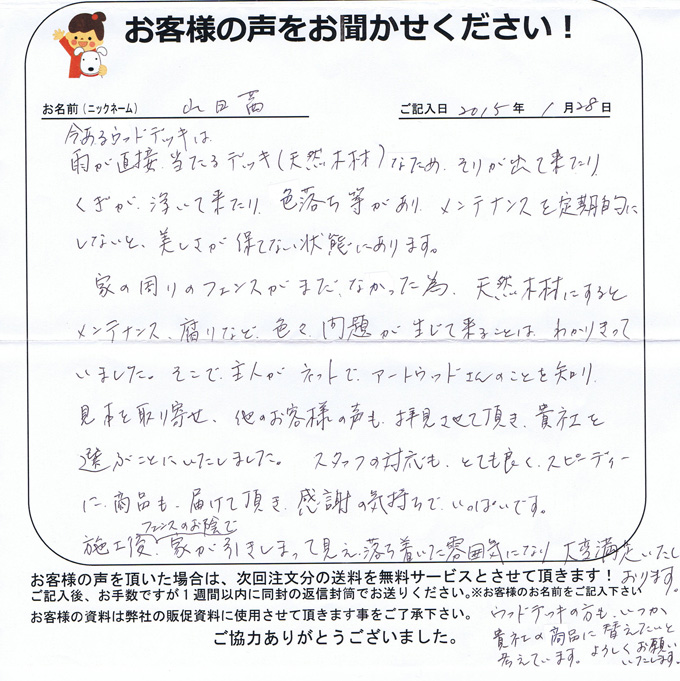 お客様の声をお聞かせください！
お名前（ニックネーム） 山田 ご記入日 2015 年 1 月 28 日
今あるウッドデッキは、
雨が直接、当たるデッキ（天然木材）なため、そりが出て来たり、
くぎが、浮いて来たり、色落ち等があり、メンテナンスを定期的に
しないと、美しさが保てない状態にあります。
家の周りのフェンスがまだ、なかった為、天然木材にすると
メンテナンス、腐りなど、色々、問題が生じて来ることは、わかりきって
いました。そこで、主人がネットで、アートウッドさんのことを知り、
見本を取り寄せ、他のお客様の声も、拝見させて頂き、貴社を
選ぶことにいたしました。スタッフの対応も、とても良く、スピーディー
に、商品も、届けて頂き、感謝の気持ちで、いっぱいです。
フェンスのお陰で
施工後、家が引きしまって見え、落ち着いた雰囲気になり 大変満足いたし
おります。
お客様の声を頂いた場合は、次回注文分の送料を無料サービスとさせて頂きます！
ご記入後、お手数ですが１週間以内に同封の返信封筒でお送りください。※お客様のお名前をご記入下さい
お客様の資料は弊社の販促資料に使用させて頂きます事をご了承下さい。
ご協力ありがとうございました。
ウッドデッキの方も、いつか
貴社の商品に替えたいと
考えています。よろしくお願い
いたします。